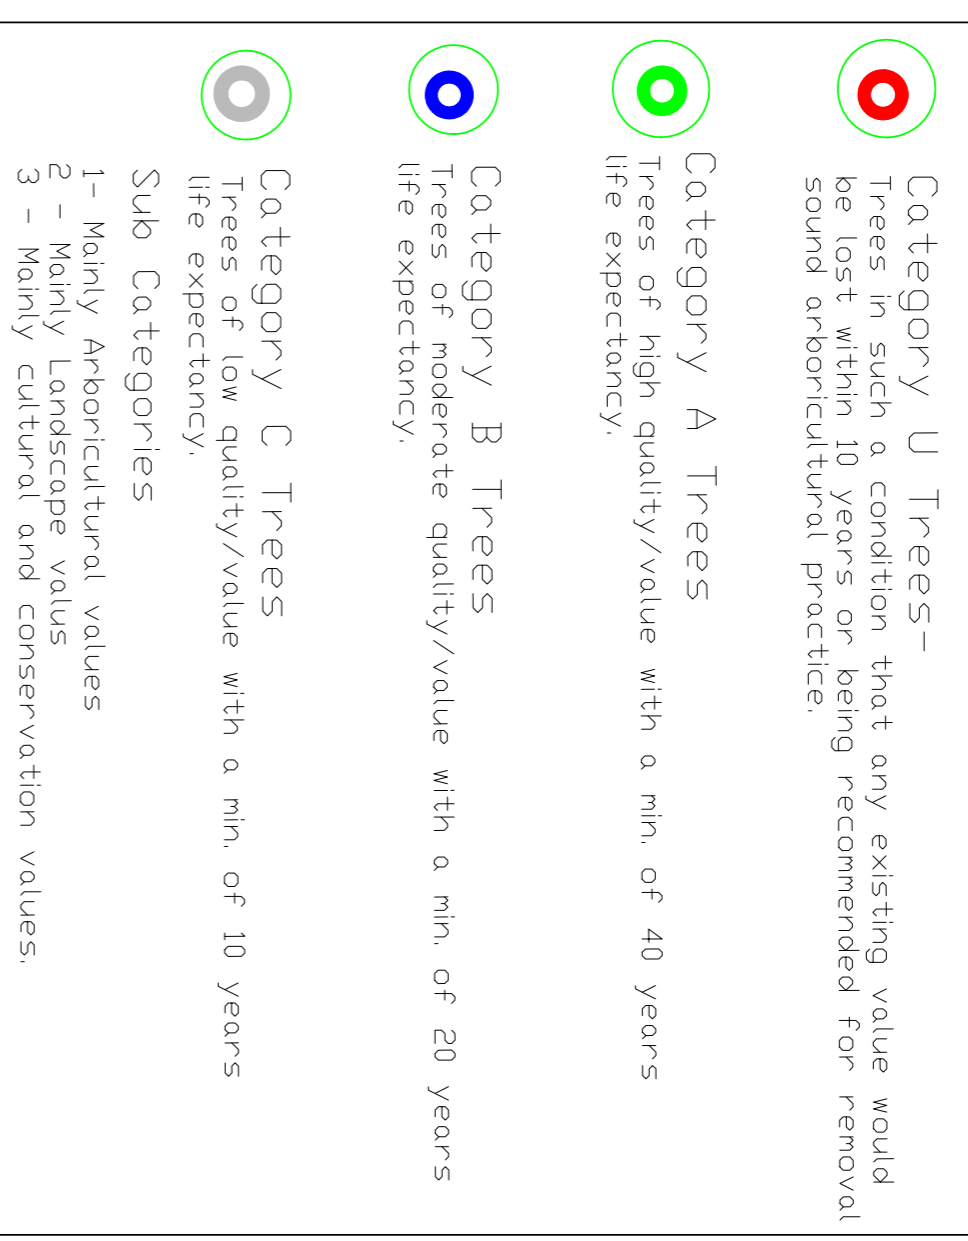 Category U Trees-
Trees in such a condition that any existing value would
be lost within 10 years or being recommended for removal
sound arboricultural practice.
Category A Trees
Trees of high quality/value with a min. of 40 years
life expectancy.
Category B Trees
Trees of moderate quality/value with a min. of 20 years
life expectancy.
Category C Trees
Trees of low quality/value with a min. of 10 years
life expectancy.
Sub Categories
1- Mainly Arboricultural values
2 - Mainly Landscape valus
3 - Mainly cultural and conservation values.